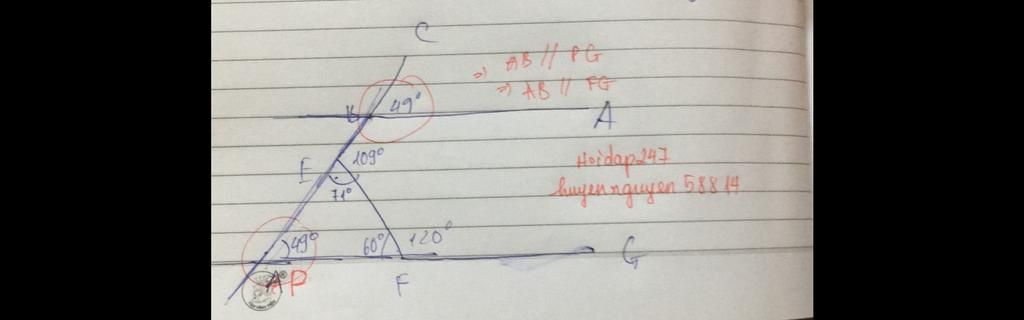 C
=) AB // PG
=) AB // FG
B 49°
A
E 109°
Hoidap247
huyennguyen 58814
71°
49° 60° 120°
G
P F